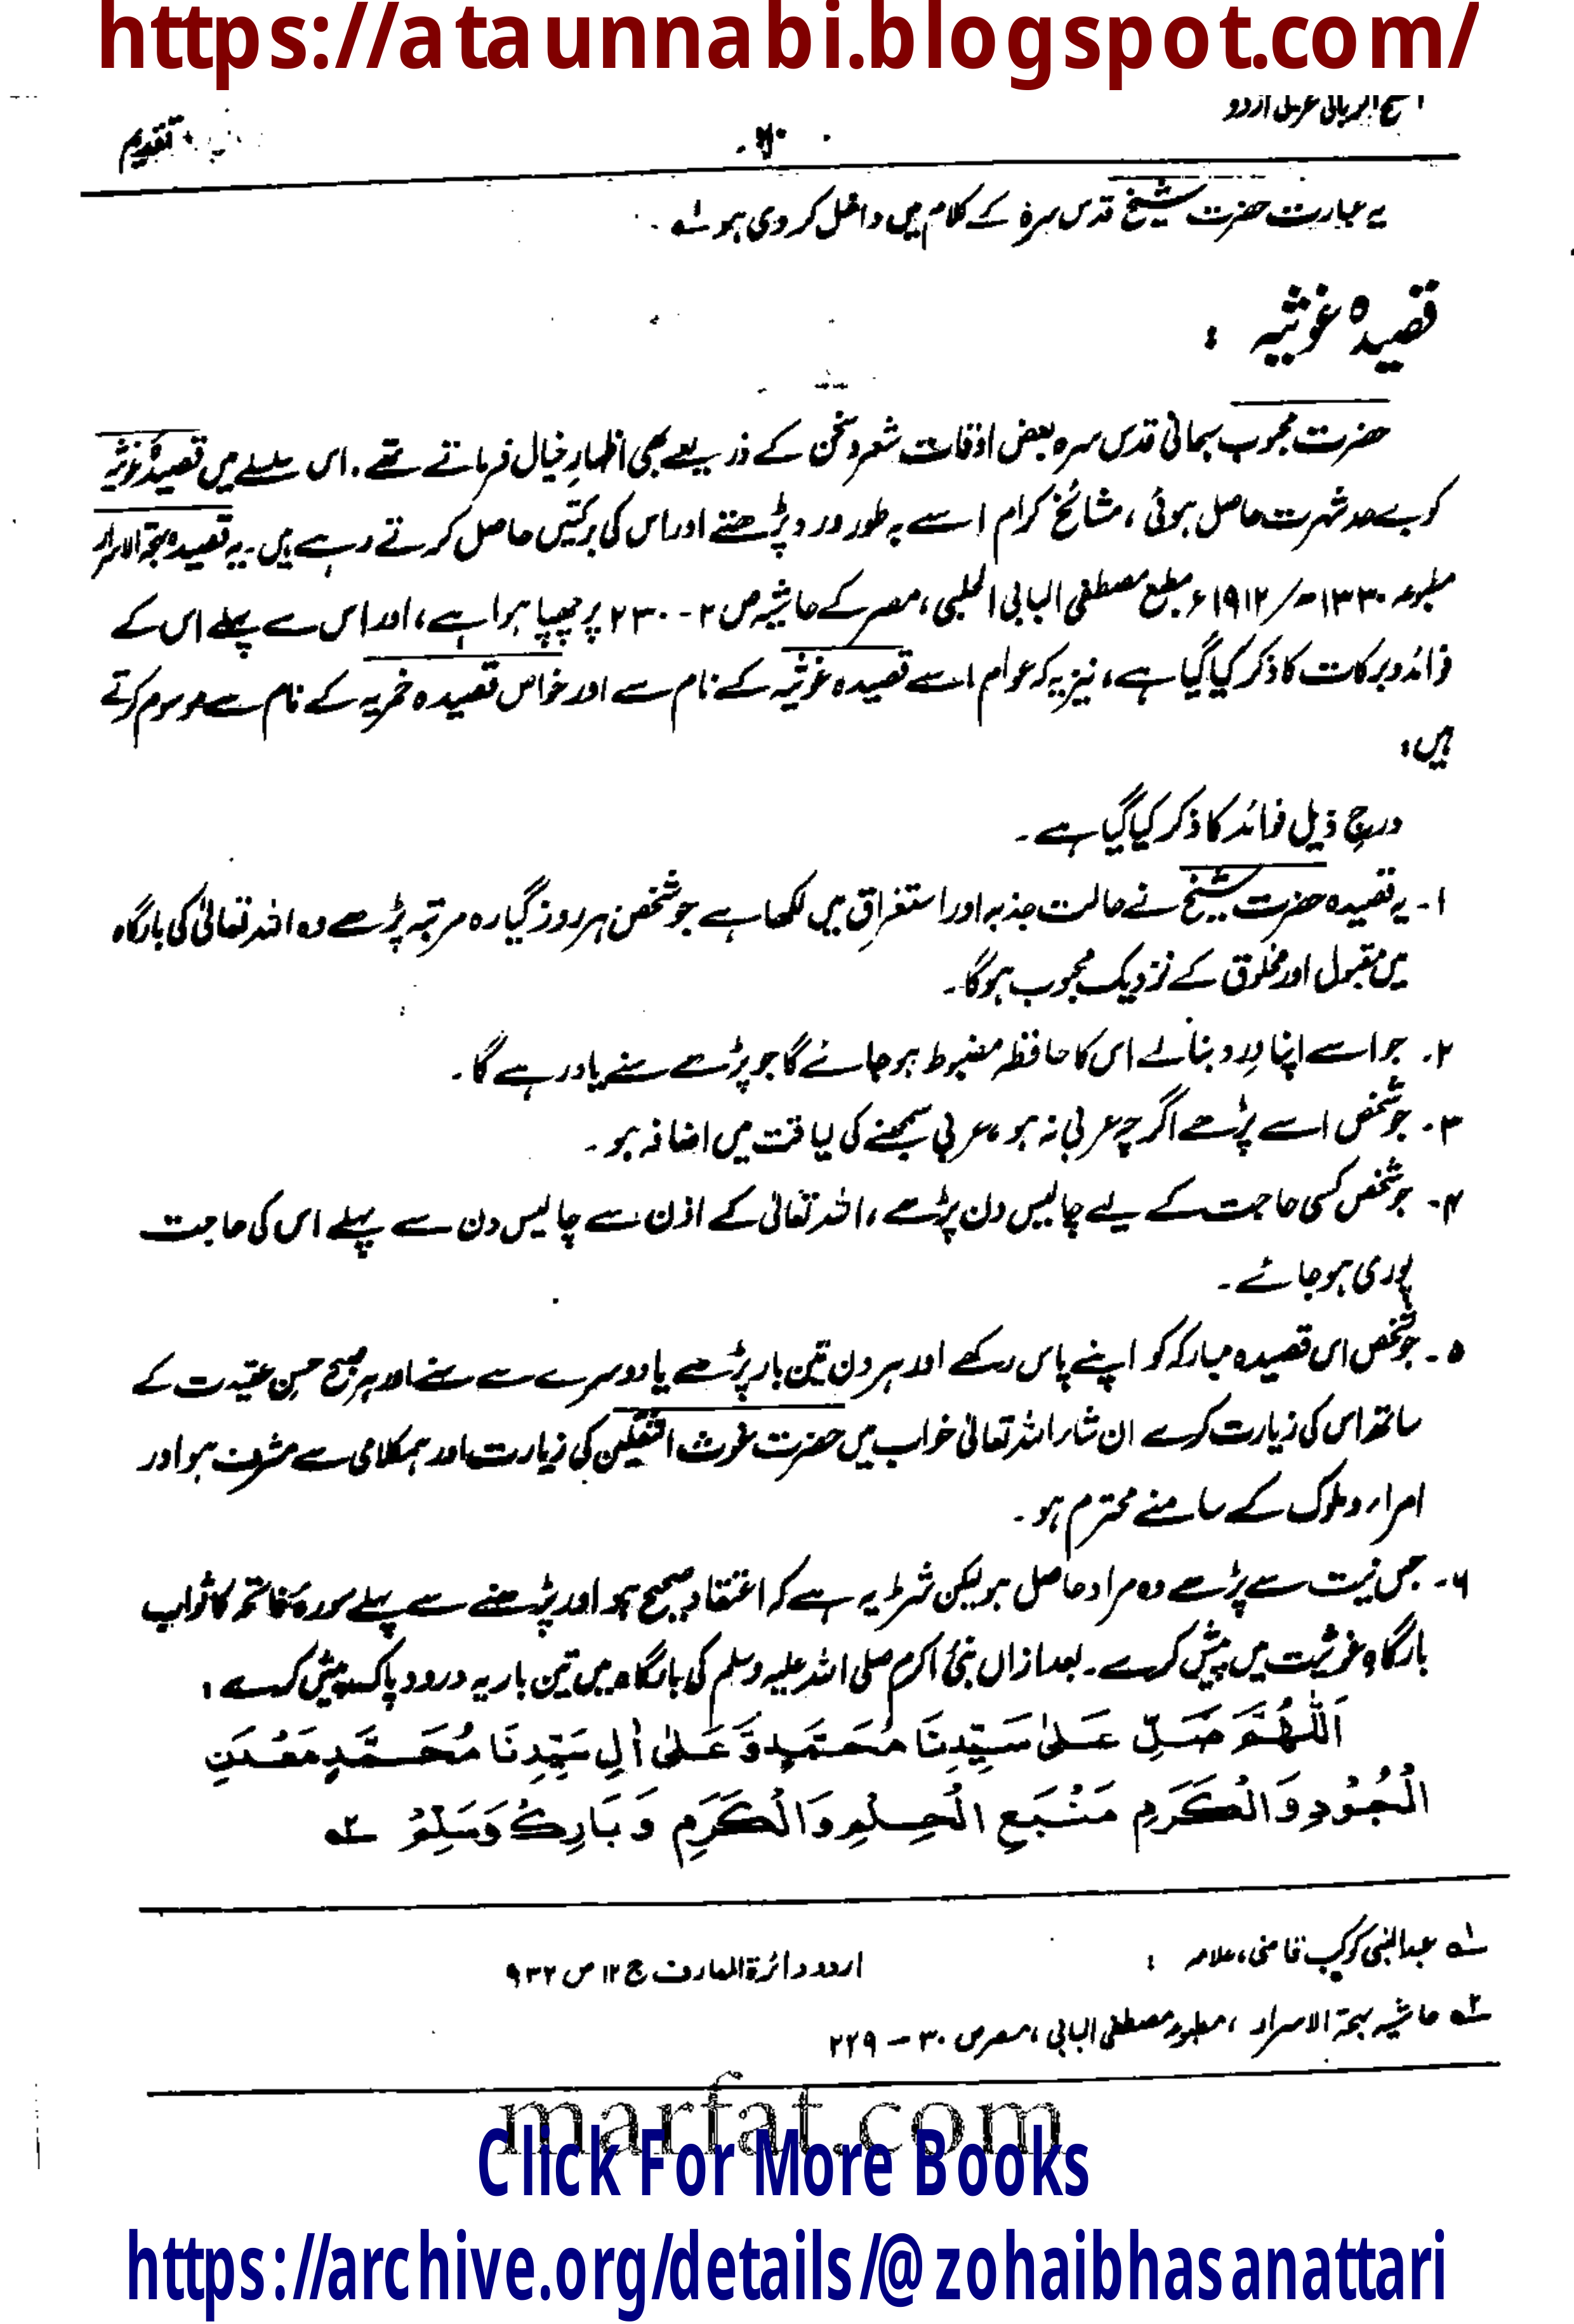 https://ataunnabi.blogspot.com/
الفتح الربانی عربی اردو
تقدیم
یہ عبارت حضرت شیخ قدس سرہ کے کلام میں داخل کر دی ہو ۱؎۔
قصیدہ غوثیہ :
حضرت محبوب سبحانی قدس سرہ بعض اوقات شعر و سخن کے ذریعے بھی اظہارِ خیال فرماتے تھے۔ اس سلسلے میں قصیدۂ غوثیہ
کو بے حد شہرت حاصل ہوئی، مشائخ کرام اسے بہ طور ورد پڑھتے اور اس کی برکتیں حاصل کرتے رہے ہیں۔ یہ قصیدہ بہجۃ الاسرار
مطبوعہ ۱۳۳۰ھ/۱۹۱۲ء مطبع مصطفی البابی الحلبی، مصر کے حاشیہ ص ۲-۲۳۰ پر چھپا ہوا ہے، اور اس سے پہلے اس کے
فوائد و برکات کا ذکر کیا گیا ہے، نیز یہ کہ عوام اسے قصیدہ غوثیہ کے نام سے اور خواص قصیدہ خمریہ کے نام سے موسوم کرتے
ہیں:
درج ذیل فوائد کا ذکر کیا گیا ہے۔
۱۔ یہ قصیدہ حضرت شیخ نے حالت جذبہ اور استغراق میں لکھا ہے جو شخص ہر روز گیارہ مرتبہ پڑھے وہ اللہ تعالیٰ کی بارگاہ
میں مقبول اور مخلوق کے نزدیک محبوب ہوگا۔
۲۔ جو اسے اپنا وِرد بنالے اس کا حافظہ مضبوط ہو جائے گا جو پڑھے سنے یاد رہے گا۔
۳۔ جو شخص اسے پڑھے اگرچہ عربی نہ ہو، عربی سمجھنے کی لیاقت میں اضافہ ہو۔
۴۔ جو شخص کسی حاجت کے لیے چالیس دن پڑھے، اللہ تعالیٰ کے اذن سے چالیس دن سے پہلے اس کی حاجت
پوری ہو جائے۔
۵۔ جو شخص اس قصیدہ مبارکہ کو اپنے پاس رکھے اور ہر دن تین بار پڑھے یا دوسرے سے سنے اور ہر صبح حسن عقیدت کے
ساتھ اس کی زیارت کرے ان شاء اللہ تعالیٰ خواب میں حضرت غوث الثقلین کی زیارت اور ہمکلامی سے مشرف ہو اور
امراء و ملوک کے سامنے محترم ہو۔
۶۔ جس نیت سے پڑھے وہ مراد حاصل ہو لیکن شرط یہ ہے کہ اعتقاد صحیح ہو اور پڑھنے سے پہلے سورہ فاتحہ کا ثواب
بارگاہِ غوثیت میں پیش کرے۔ بعد ازاں نبی اکرم صلی اللہ علیہ وسلم کی بارگاہ میں تین بار یہ درود پاک پیش کرے:
اَللّٰهُمَّ صَلِّ عَلٰی سَیِّدِنَا مُحَمَّدٍ وَّ عَلٰی اٰلِ سَیِّدِنَا مُحَمَّدٍ مَعْدَنِ
الْجُوْدِ وَالْكَرَمِ مَنْبَعِ الْحِلْمِ وَالْكَرَمِ وَ بَارِكْ وَسَلِّمْ ۲؎
۱؎ عبدالنبی کوکب قاضی، علامہ : اردو دائرۃ المعارف ج ۱۲ ص ۹۳۲
۲؎ حاشیہ بہجۃ الاسرار، مطبوعہ مصطفی البابی، مصر ص ۳۰ – ۲۲۹
marfat.com
Click For More Books
https://archive.org/details/@zohaibhasanattari